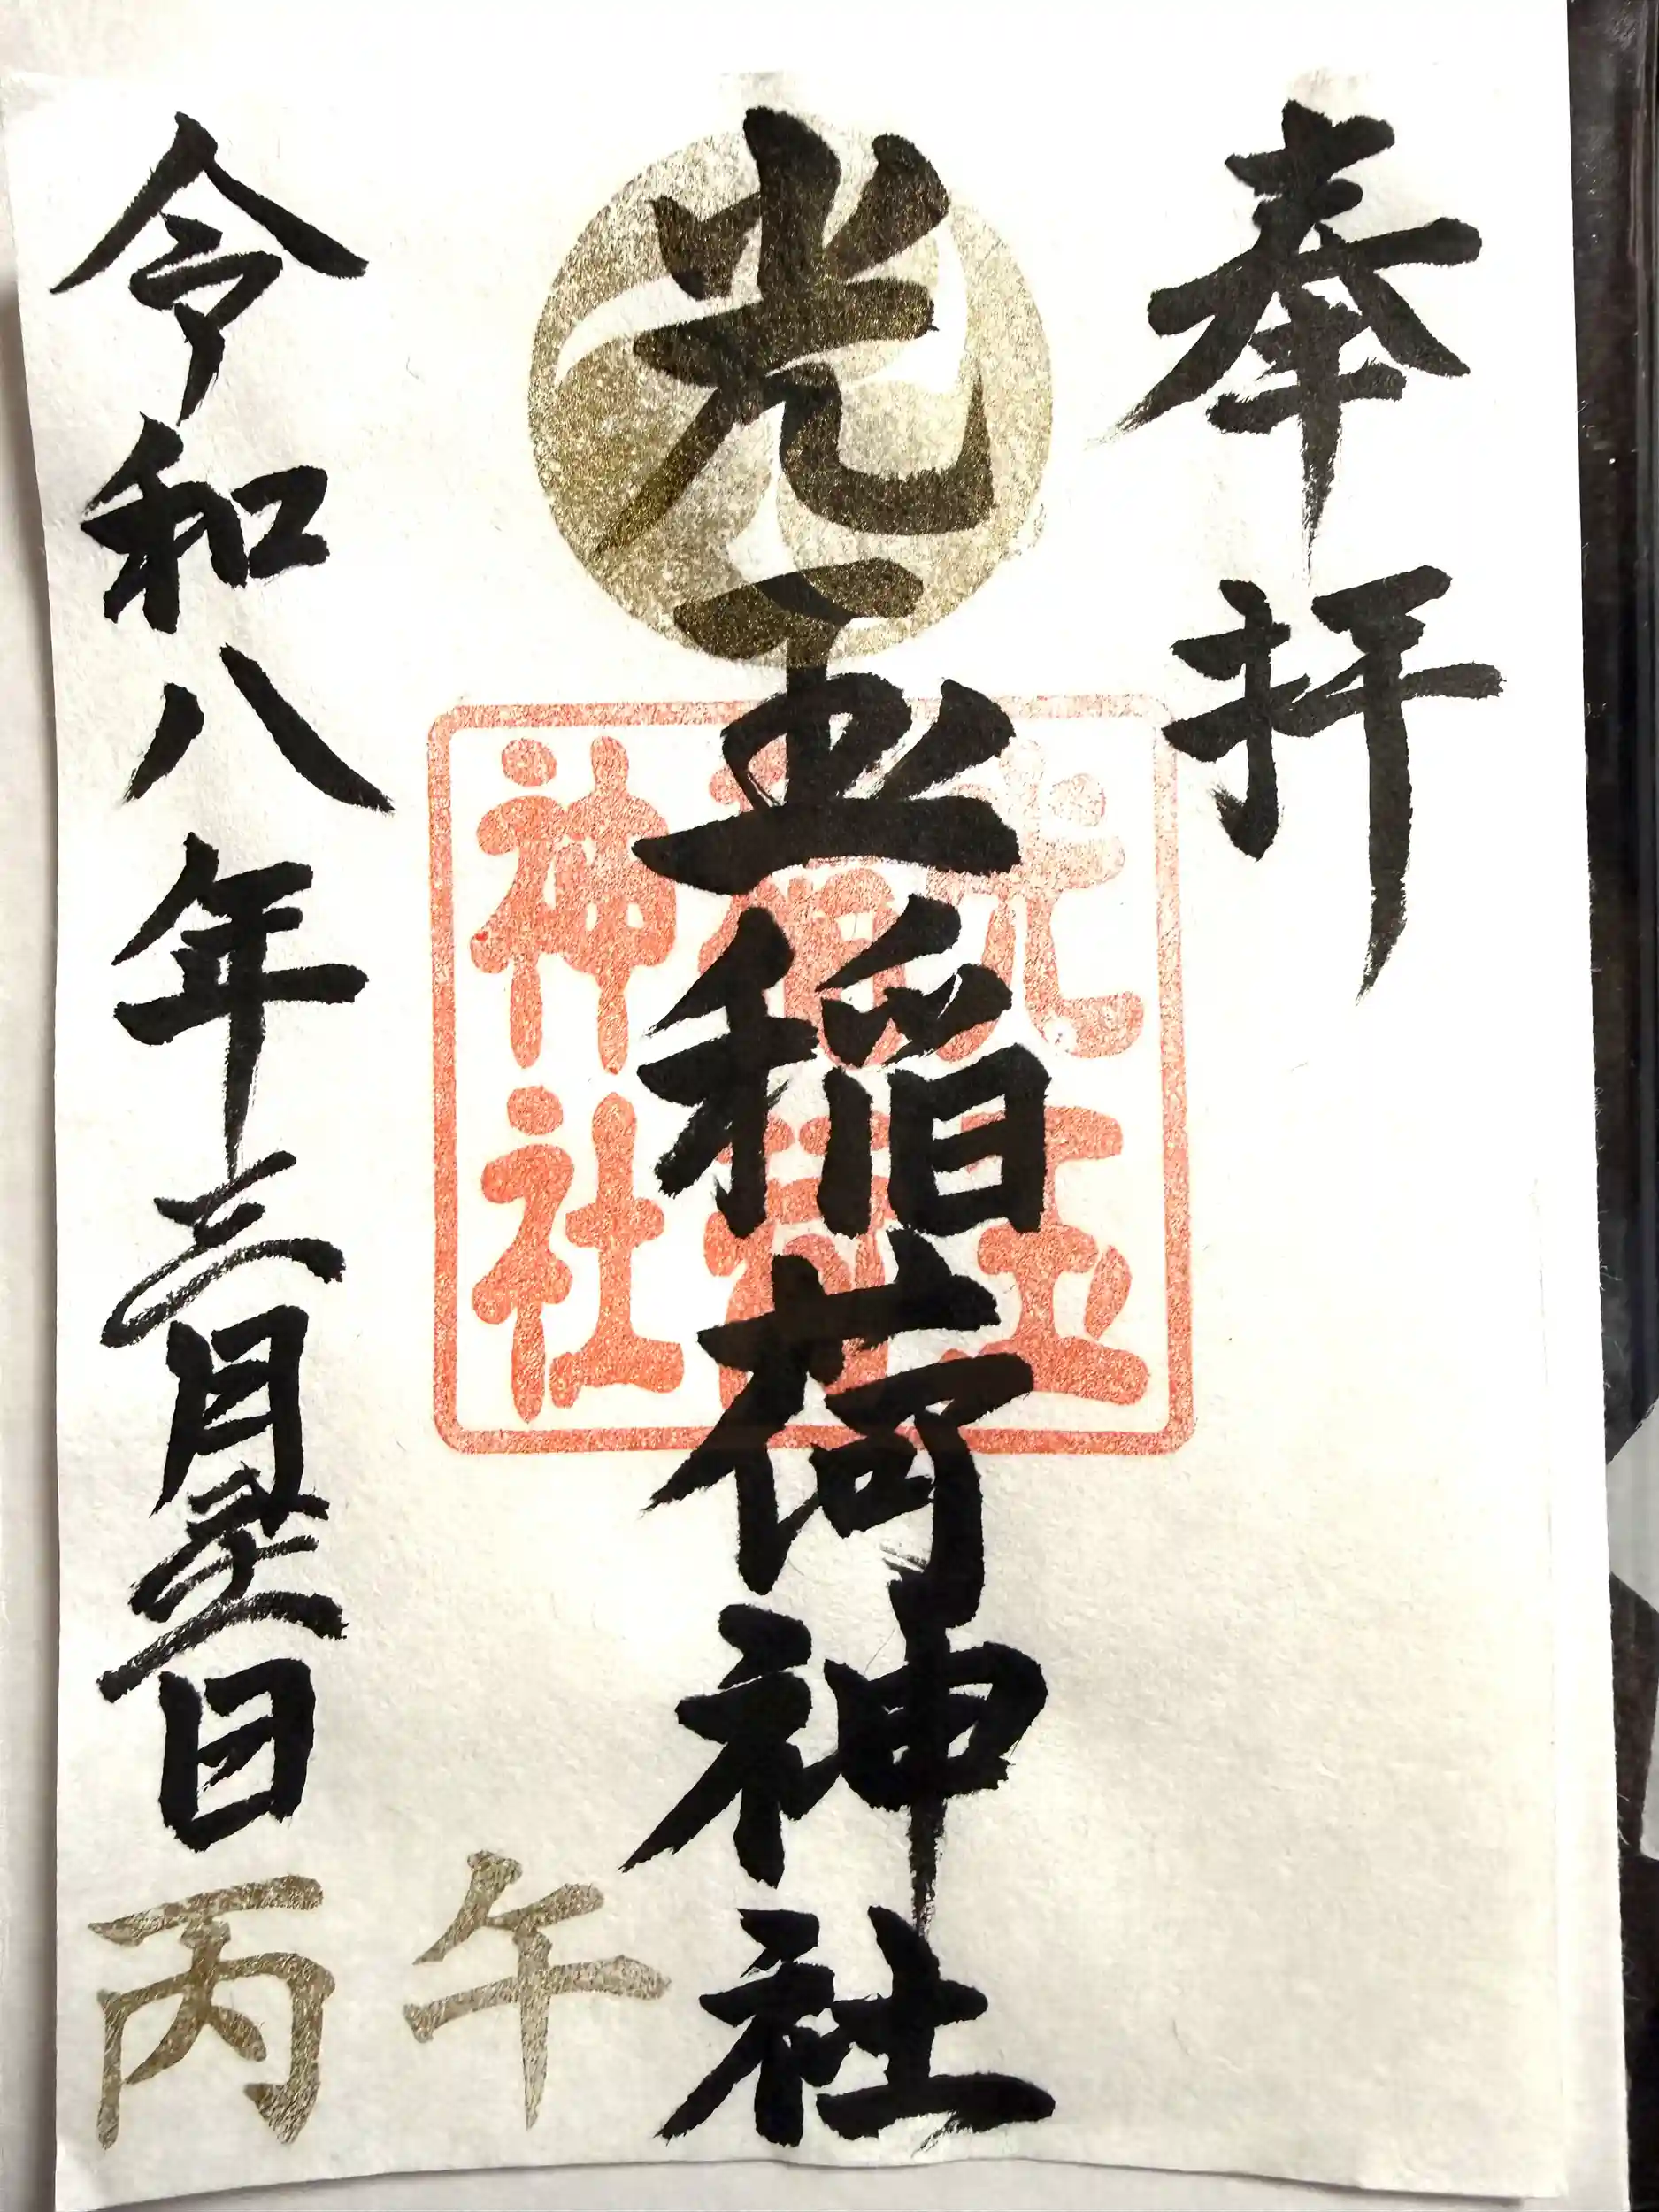 奉拝
光玉稲荷神社
光玉
稲荷
神社
令和八年三月日
丙午